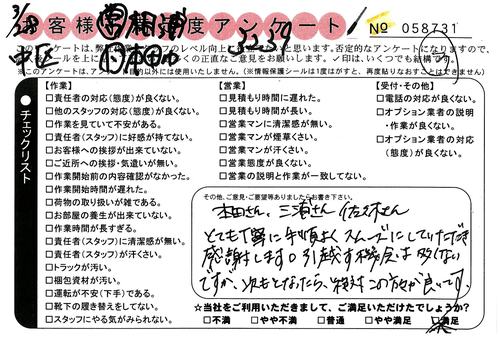 3/28
お客様満足度アンケート
№ 058731
中区
本田
このアンケートは、弊社
※このアンケートは、アンケート目的以外には使用いたしません。(※情報保護シールは1度はがすと、再度貼りなおすことができません。)
チェックリスト
【作業】
□責任者の対応(態度)が良くない。
□他のスタッフの対応(態度)が良くない。
□作業を見ていて不安がある。
□責任者(スタッフ)に好感が持てない。
□お客様への挨拶が出来ていない。
□ご近所への挨拶・気遣いが無い。
□作業開始前の内容確認がなかった。
□作業開始時間が遅れた。
□荷物の取り扱いが雑である。
□お部屋の養生が出来ていない。
□作業時間が長すぎる。
□責任者(スタッフ)に清潔感が無い。
□責任者(スタッフ)が汗くさい。
□トラックが汚い。
□梱包資材が汚い。
□運転が不安(下手)である。
□靴下の履き替えをしてない。
□スタッフにやる気がみられない。
【営業】
□見積もり時間に遅れた。
□見積もり時間が長い。
□営業マンに清潔感が無い。
□営業マンが煙草くさい。
□営業マンが汗くさい。
□営業態度が良くない。
□営業の説明と作業が一致してない。
【受付・その他】
□電話の対応が良くない。
□オプション業者の説明
・作業が良くない。
□オプション業者の対応
(態度)が良くない。
その他、ご意見・ご要望等ありましたらお書き下さい。
本田さん、三浦さん 佐々木さん
とても丁寧に手順よくスムーズにしていただき
感謝します。引越す機会は少ない
ですが、次もとなったら、絶対この方々が良いです。
☆当社をご利用いただきまして、ご満足いただけたでしょうか?
□不満 □やや不満 □普通 □やや満足 □満足